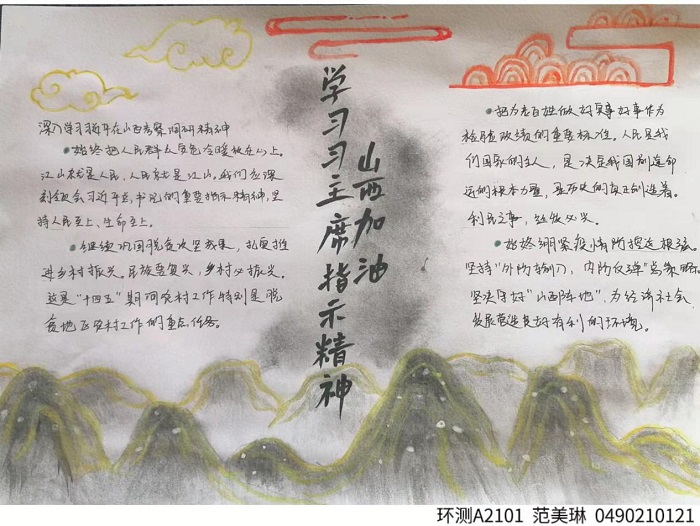 学习习主席指示精神
山西加油
深入学习习近平在山西考察调研精神
始终把人民群众安危冷暖放在心上。
江山就是人民,人民就是江山。我们要深
刻领会习近平总书记的重要指示精神,坚
持人民至上、生命至上。
继续巩固脱贫攻坚成果,拓展推
进乡村振兴。民族要复兴,乡村必振兴。
这是“十四五”期间农村工作特别是脱
贫地区农村工作的重点任务。
把为老百姓做好实事好事作为
检验政绩的重要标准。人民是我
们国家的主人,是决定我国前途命
运的根本力量,是历史的真正创造者。
利民之事,丝发必兴。
始终绷紧疫情防控这根弦。
坚持“外防输入,内防反弹”总策略。
坚决守好“山西阵地”,为经济社会
发展营造良好有利的环境。
环测A2101 范美琳 0490210121